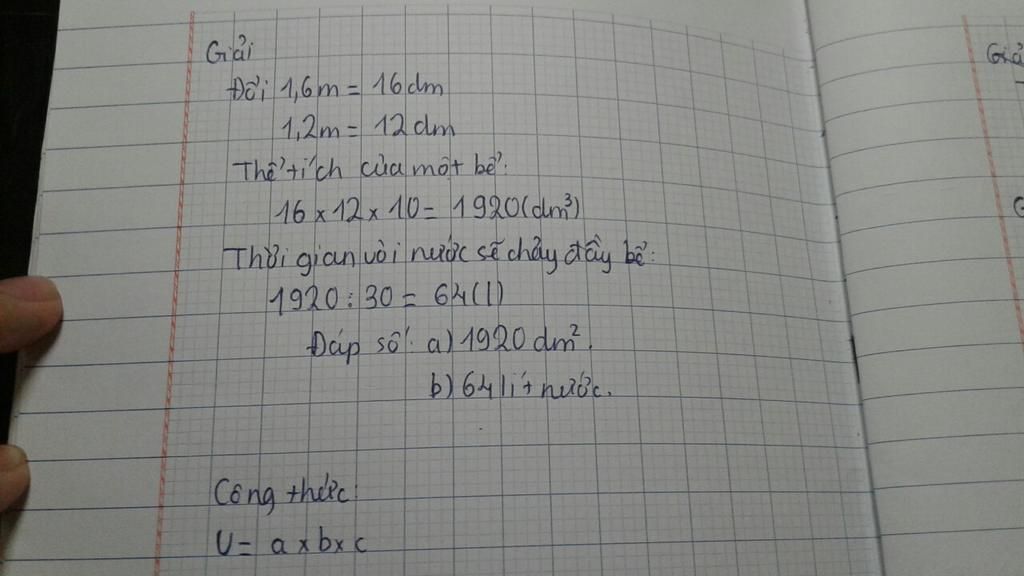 Giải
Đổi 1,6m = 16dm
1,2m = 12dm
Thể tích của một bể:
16 x 12 x 10 = 1920 (dm³)
Thời gian vòi nước sẽ chảy đầy bể:
1920 : 30 = 64 (l)
Đáp số: a) 1920 dm².
b) 64 lít nước.
Công thức:
V = a x b x c